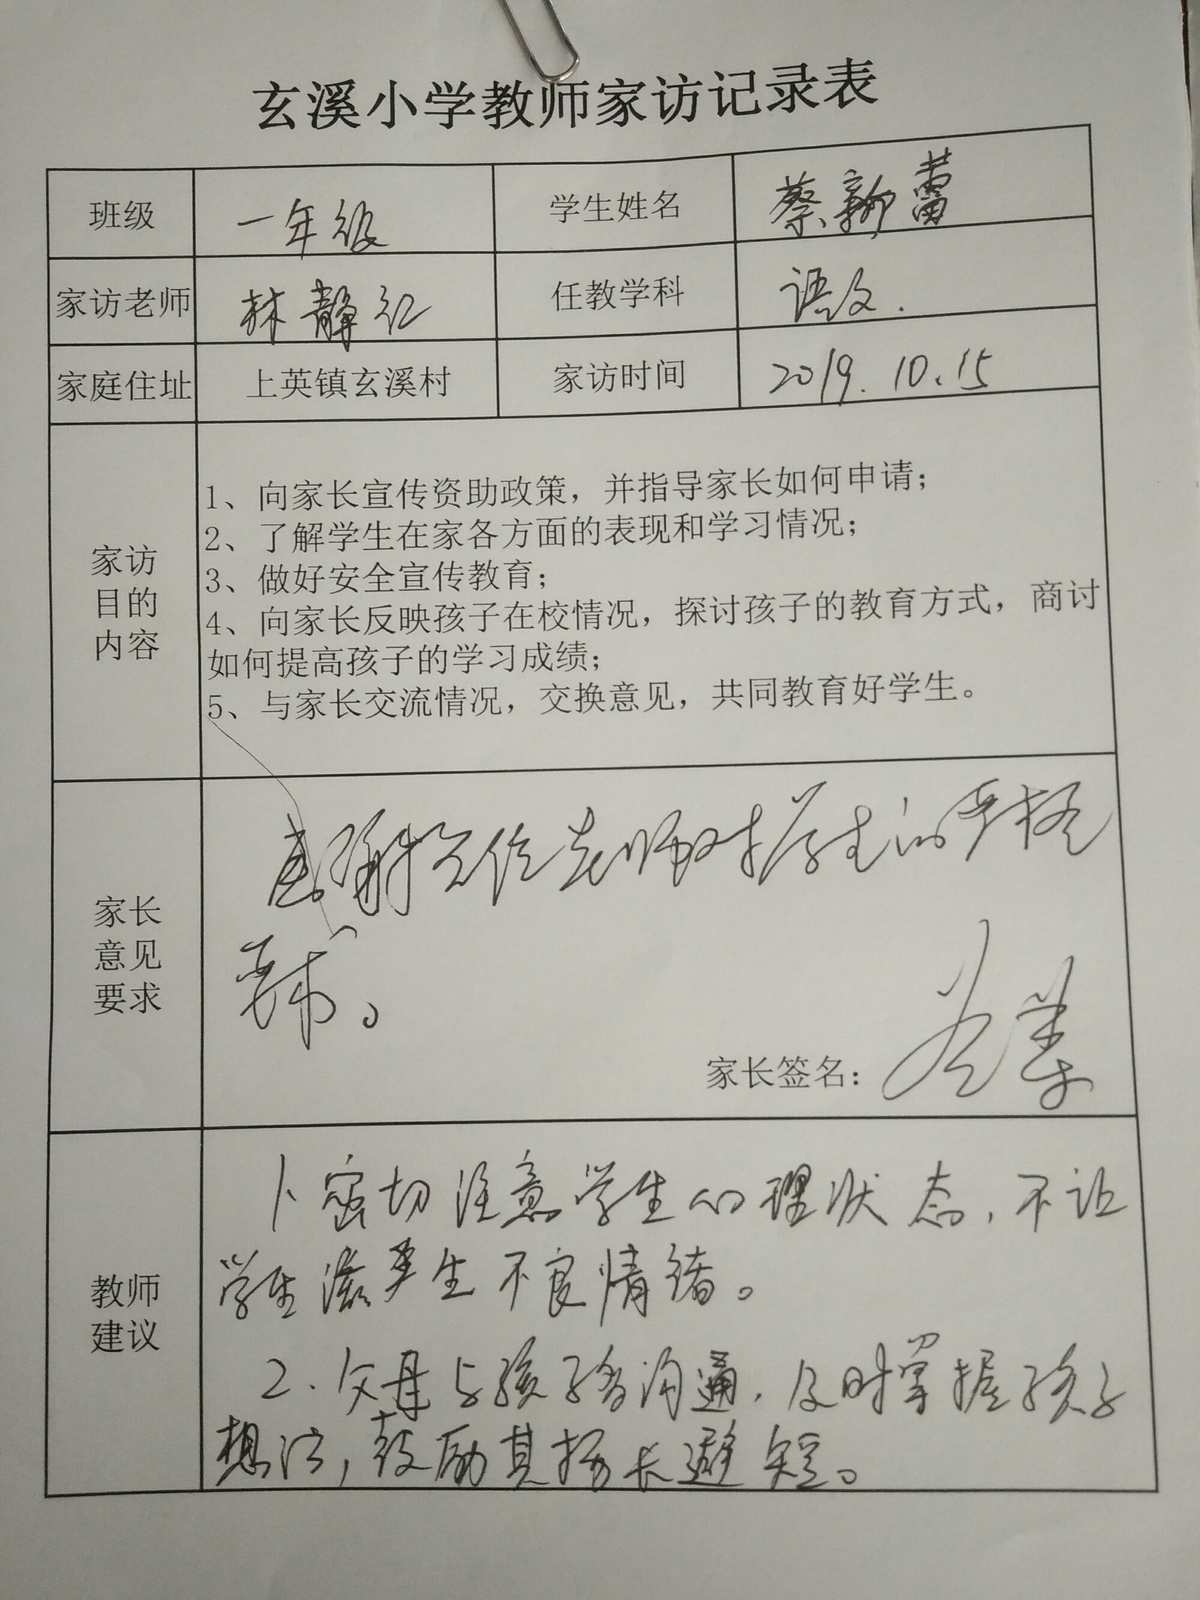 玄溪小学教师家访记录表
班级 一年级 学生姓名 蔡新蕾
家访老师 林静红 任教学科 语文.
家庭住址 上英镇玄溪村 家访时间 2019.10.15
家访目的内容
1、向家长宣传资助政策，并指导家长如何申请；
2、了解学生在家各方面的表现和学习情况；
3、做好安全宣传教育；
4、向家长反映孩子在校情况，探讨孩子的教育方式，商讨
如何提高孩子的学习成绩；
5、与家长交流情况，交换意见，共同教育好学生。
家长意见要求
感谢各位老师对学生的严格
要求。
家长签名：
教师建议
1、密切注意学生心理状态，不让
学生滋生不良情绪。
2、父母与孩子多沟通，及时掌握孩子
想法，鼓励其扬长避短。